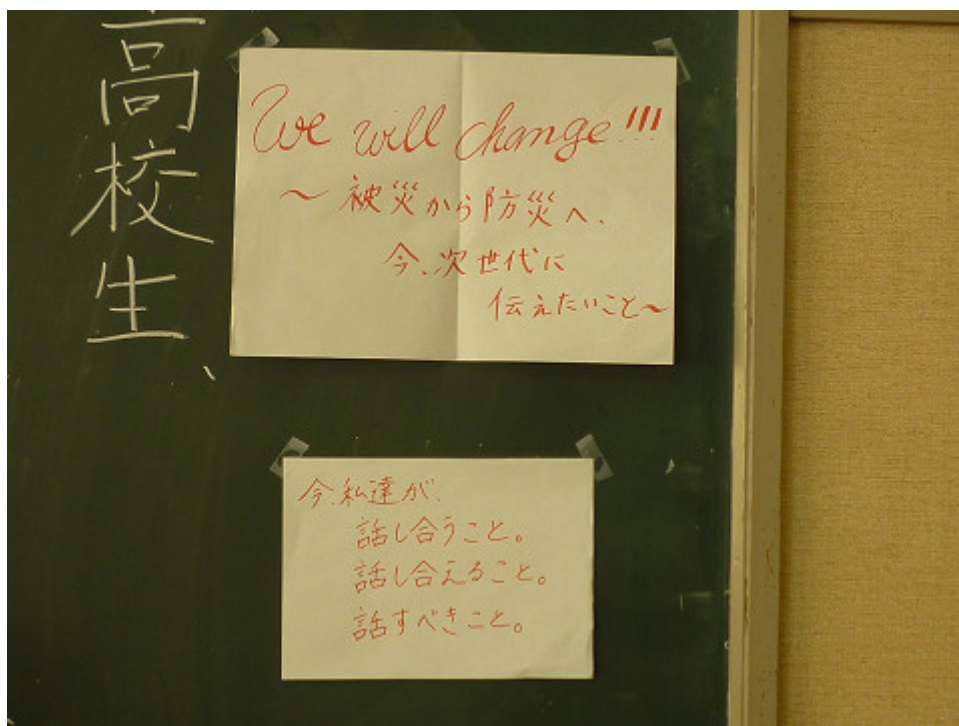 高校生、
We will change!!!
～被災から防災へ、
今、次世代に
伝えたいこと～
今、私達が、
話し合うこと。
話し合えること。
話すべきこと。